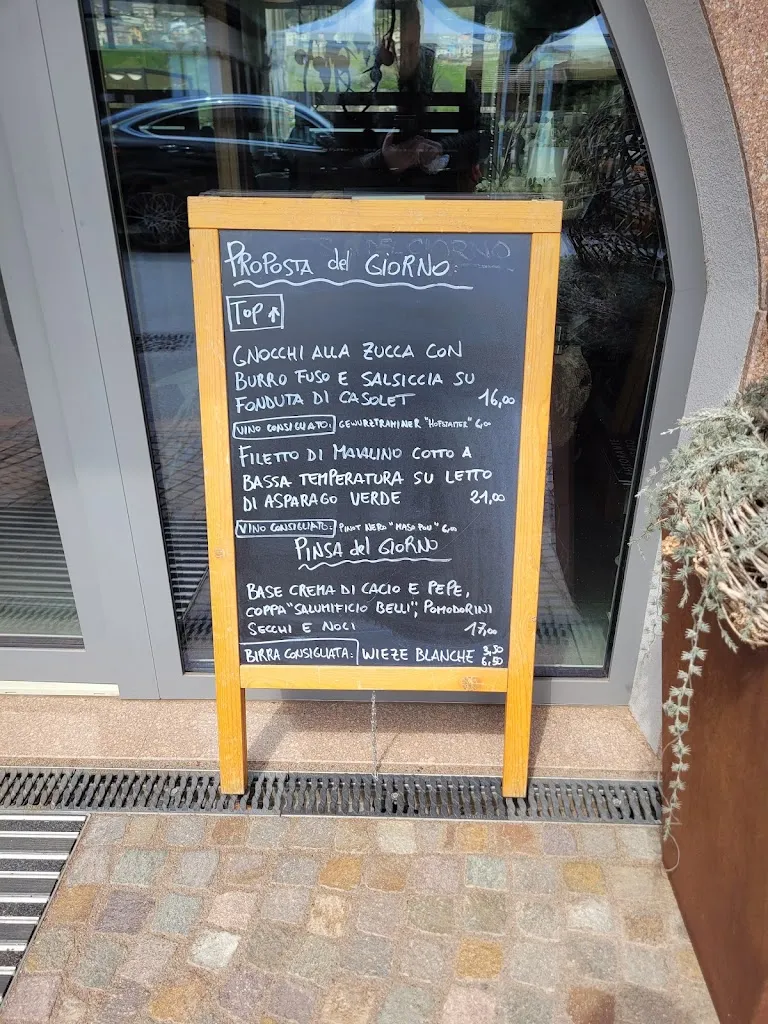 PROPOSTA del GIORNO:
TOP ↑
GNOCCHI ALLA ZUCCA CON
BURRO FUSO E SALSICCIA SU
FONDUTA DI CASOLET 16,00
VINO CONSIGLIATO: GEWURZTRAMINER "HOFSTATTER" 6,00
FILETTO DI MAIALINO COTTO A
BASSA TEMPERATURA SU LETTO
DI ASPARAGO VERDE 21,00
VINO CONSIGLIATO: PINOT NERO "MASO POLI" 6,00
PINSA del GIORNO
BASE CREMA DI CACIO E PEPE,
COPPA "SALUMIFICIO BELLI", POMODORINI
SECCHI E NOCI 17,00
BIRRA CONSIGLIATA: WIEZE BLANCHE 3,50
6,50